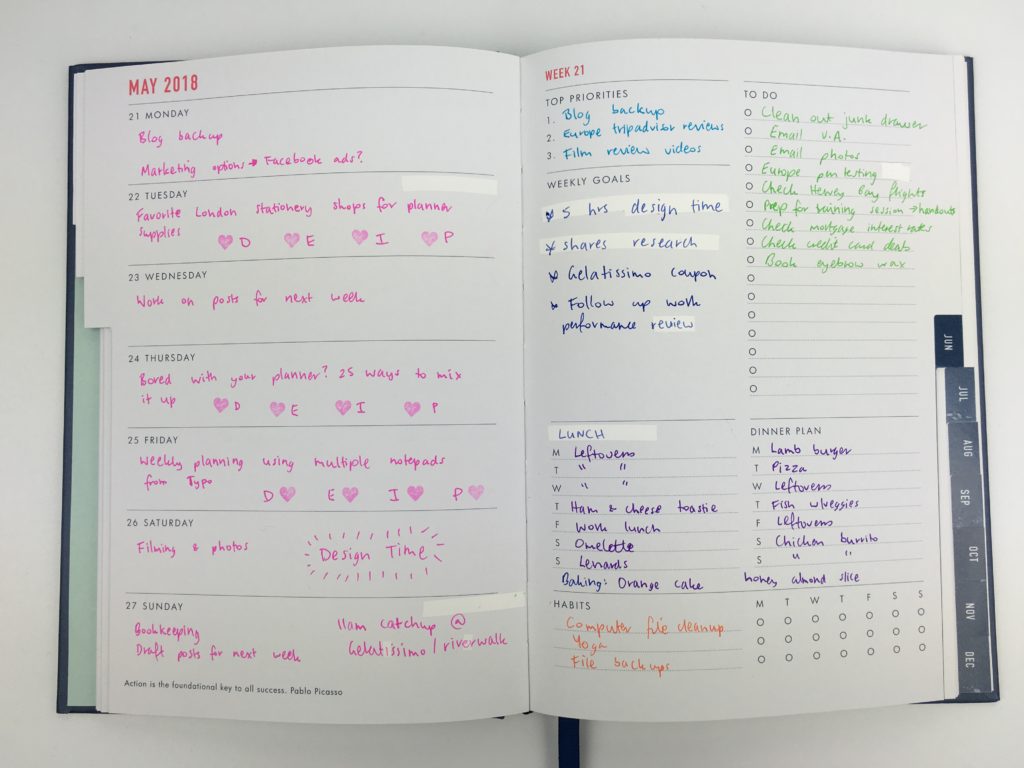 MAY 2018
21 MONDAY
Blog backup
Marketing options → Facebook ads?
22 TUESDAY
Favorite London stationery shops for planner
supplies
D E I P
23 WEDNESDAY
Work on posts for next week
24 THURSDAY
Bored with your planner? 25 ways to mix
it up D E I P
25 FRIDAY
Weekly planning using multiple notepads
from Typo
D E I P
26 SATURDAY
Filming & photos
Design Time
27 SUNDAY
Bookkeeping
Draft posts for next week
11am catchup @
Gelatissimo / riverwalk
Action is the foundational key to all success. Pablo Picasso
WEEK 21
TOP PRIORITIES
1. Blog backup
2. Europe tripadvisor reviews
3. Film review videos
WEEKLY GOALS
5 hrs design time
shares research
Gelatissimo coupon
Follow up work
performance review
TO DO
Clean out junk drawer
Email V.A.
Email photos
Europe pen testing
Check Hervey Bay flights
Prep for training session → handouts
Check mortgage interest rates
Check credit card deals
Book eyebrow wax
LUNCH
M Leftovers
T " "
W " "
T Ham & cheese toastie
F Work lunch
S Omelette
S Lenards
Baking: Orange cake honey almond slice
DINNER PLAN
M Lamb burger
T Pizza
W Leftovers
T Fish w/veggies
F Leftovers
S Chicken burrito
S " "
HABITS
M T W T F S S
Computer file cleanup
Yoga
File backups
JUN
JUL
AUG
SEP
OCT
NOV
DEC